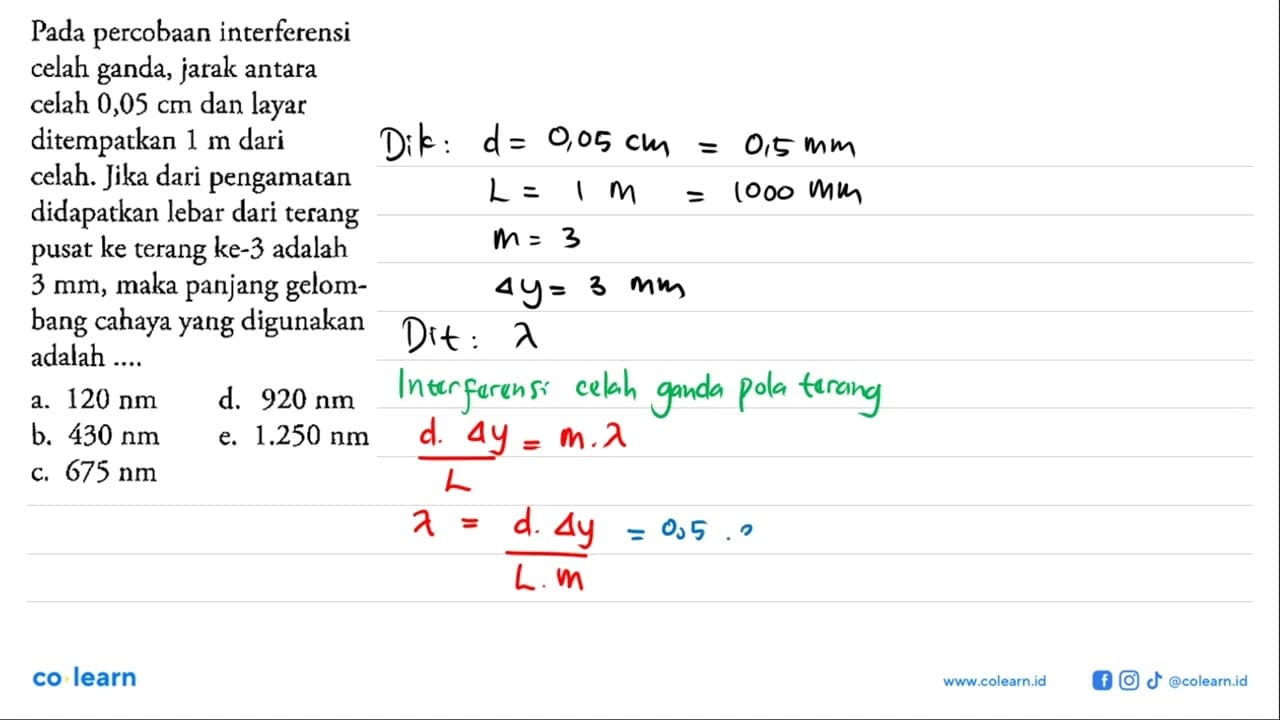 Pada percobaan interferensi
celah ganda, jarak antara
celah 0,05 cm dan layar
ditempatkan 1 m dari
celah. Jika dari pengamatan
didapatkan lebar dari terang
pusat ke terang ke-3 adalah
3 mm, maka panjang gelom-
bang cahaya yang digunakan
adalah ....
a. 120 nm d. 920 nm
b. 430 nm e. 1.250 nm
c. 675 nm
Dik: d = 0,05 cm = 0,5 mm
L = 1 m = 1000 mm
m = 3
Δy = 3 mm
Dit: λ
Interferensi celah ganda pola terang
d. Δy = m. λ
L
λ = d. Δy = 0,5 .
L. m
co learn
www.colearn.id
@colearn.id